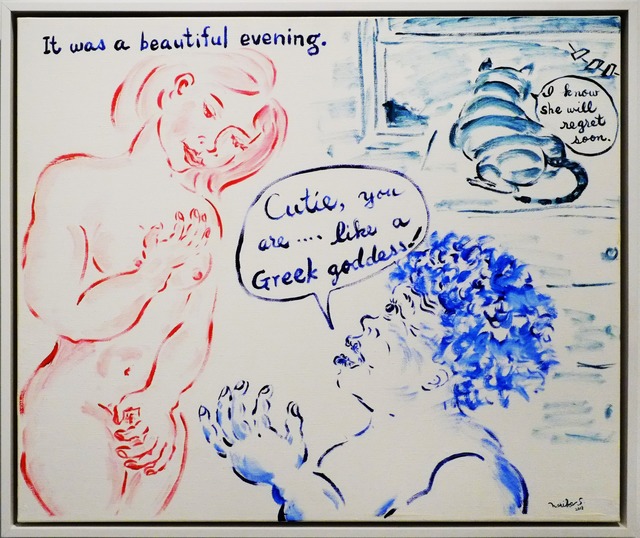 It was a beautiful evening.
I know
she will
regret
soon.
Cutie, you
are .... like a
Greek goddess!